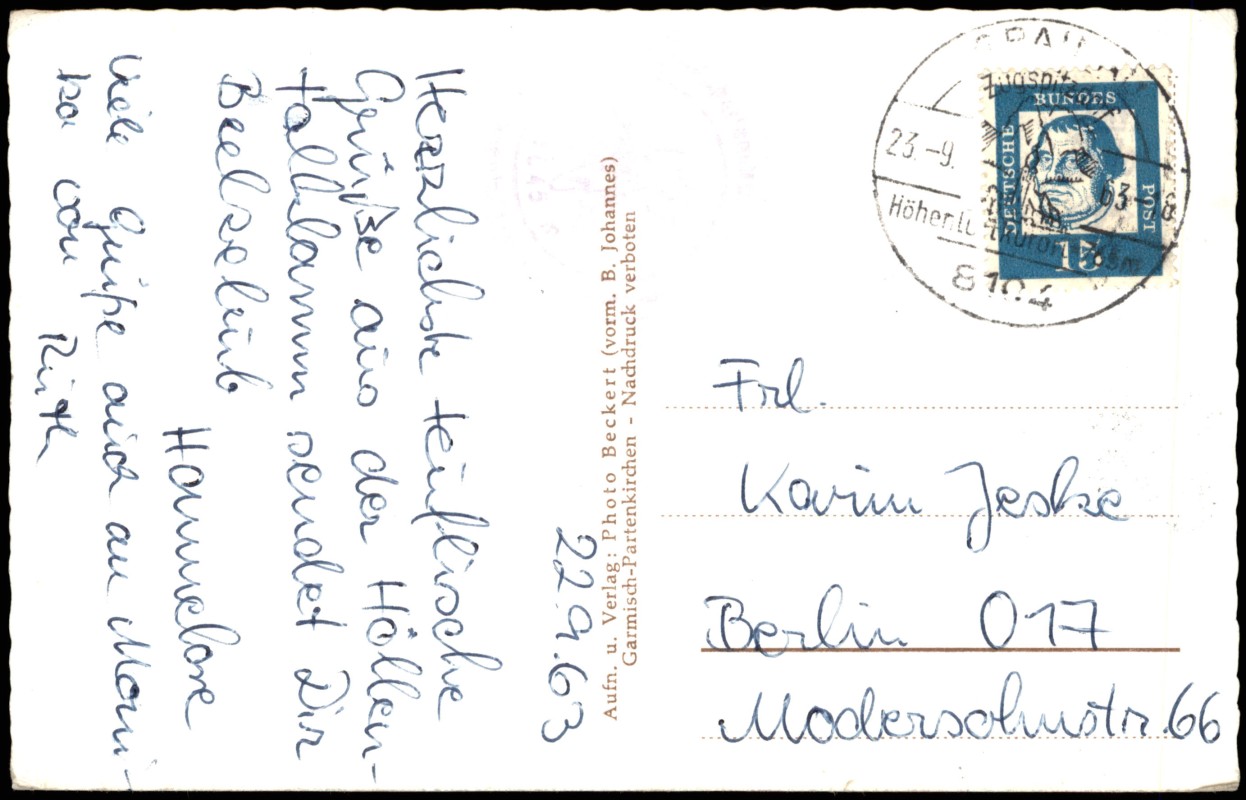 22.9.63
Herzlichste teuflische
Grüße aus der Höllen-
talklamm sendet Dir
Beelzebub
Hannelore
Viele Grüße auch an Moni-
ka von Ruth
Aufn. u. Verlag: Photo Beckert (vorm. B. Johannes)
Garmisch-Partenkirchen - Nachdruck verboten
GRAIN
Zugspitzdorf
23.-9.63-18
Höhenluftkurort
8104
DEUTSCHE
BUNDES
POST
15
Frl.
Karin Jeske
Berlin O17
Modersohnstr. 66